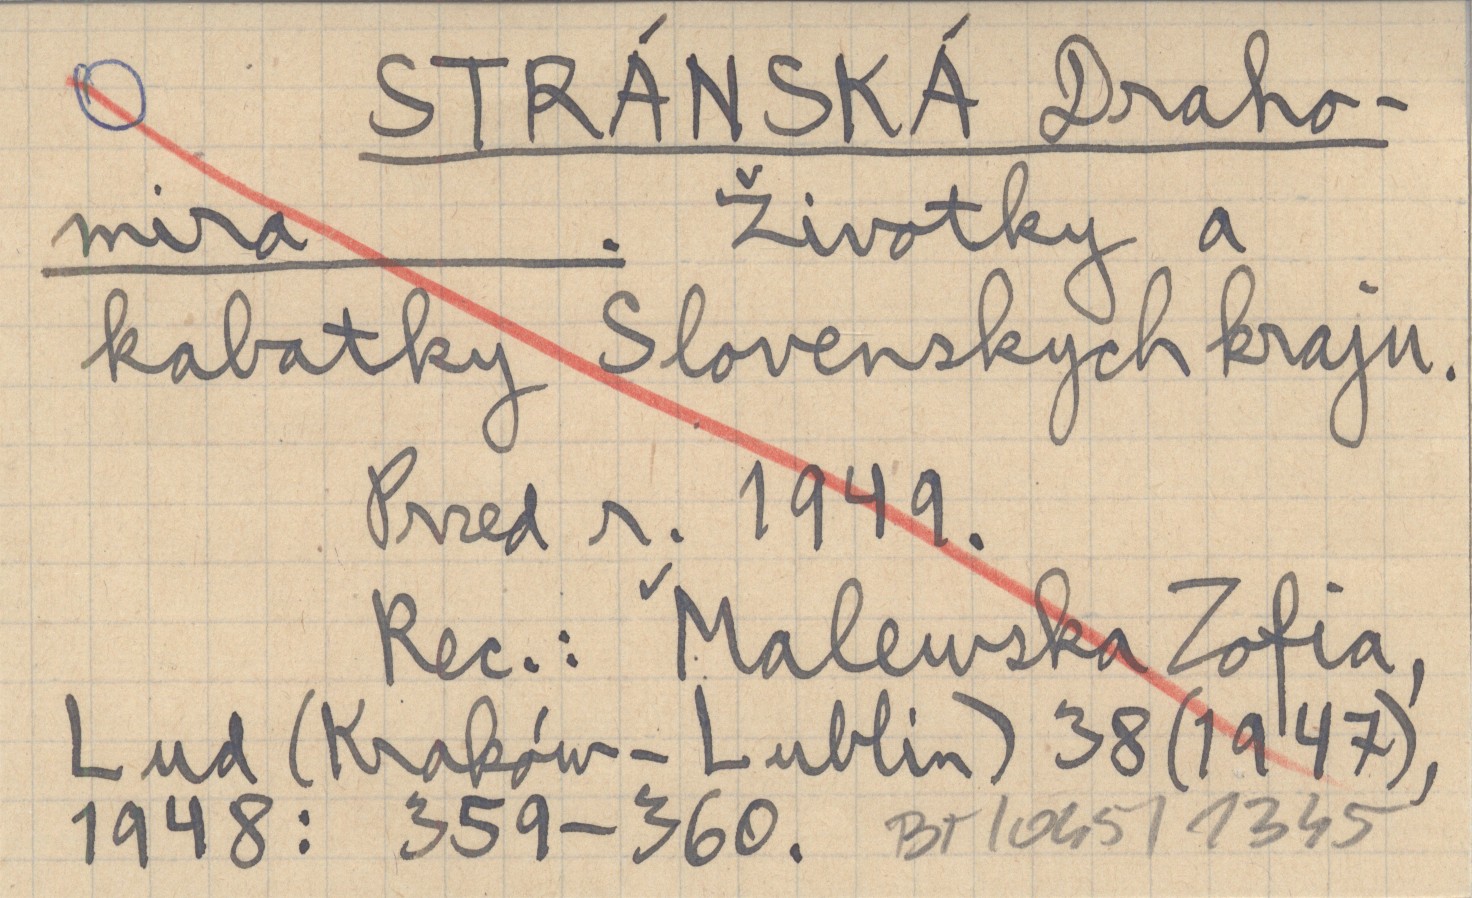 STRÁNSKÁ Draho-
mira . Životky a
kabatky Slovenskych kraju.
Przed r. 1949.
Rec.: Malewska Zofia,
Lud (Kraków-Lublin) 38(1947),
1948: 359-360. 1345